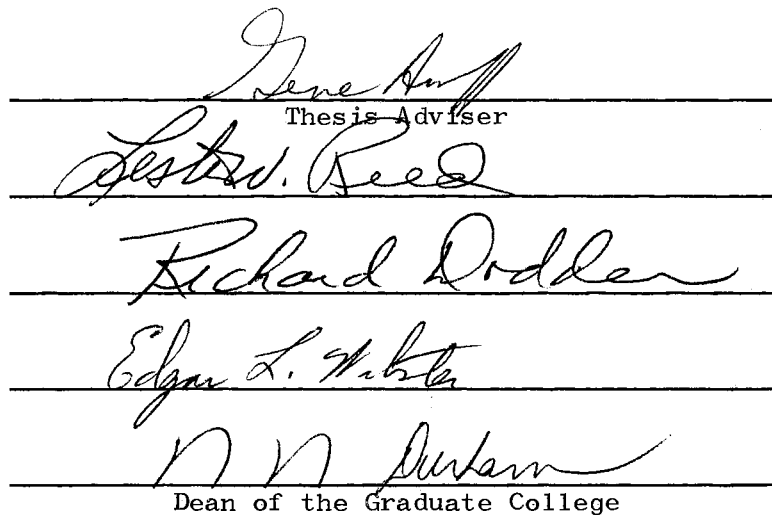 Gene Huff
Thesis Adviser
Lester W. Reed
Richard Dodder
Edgar L. Webster
N N Durham
Dean of the Graduate College